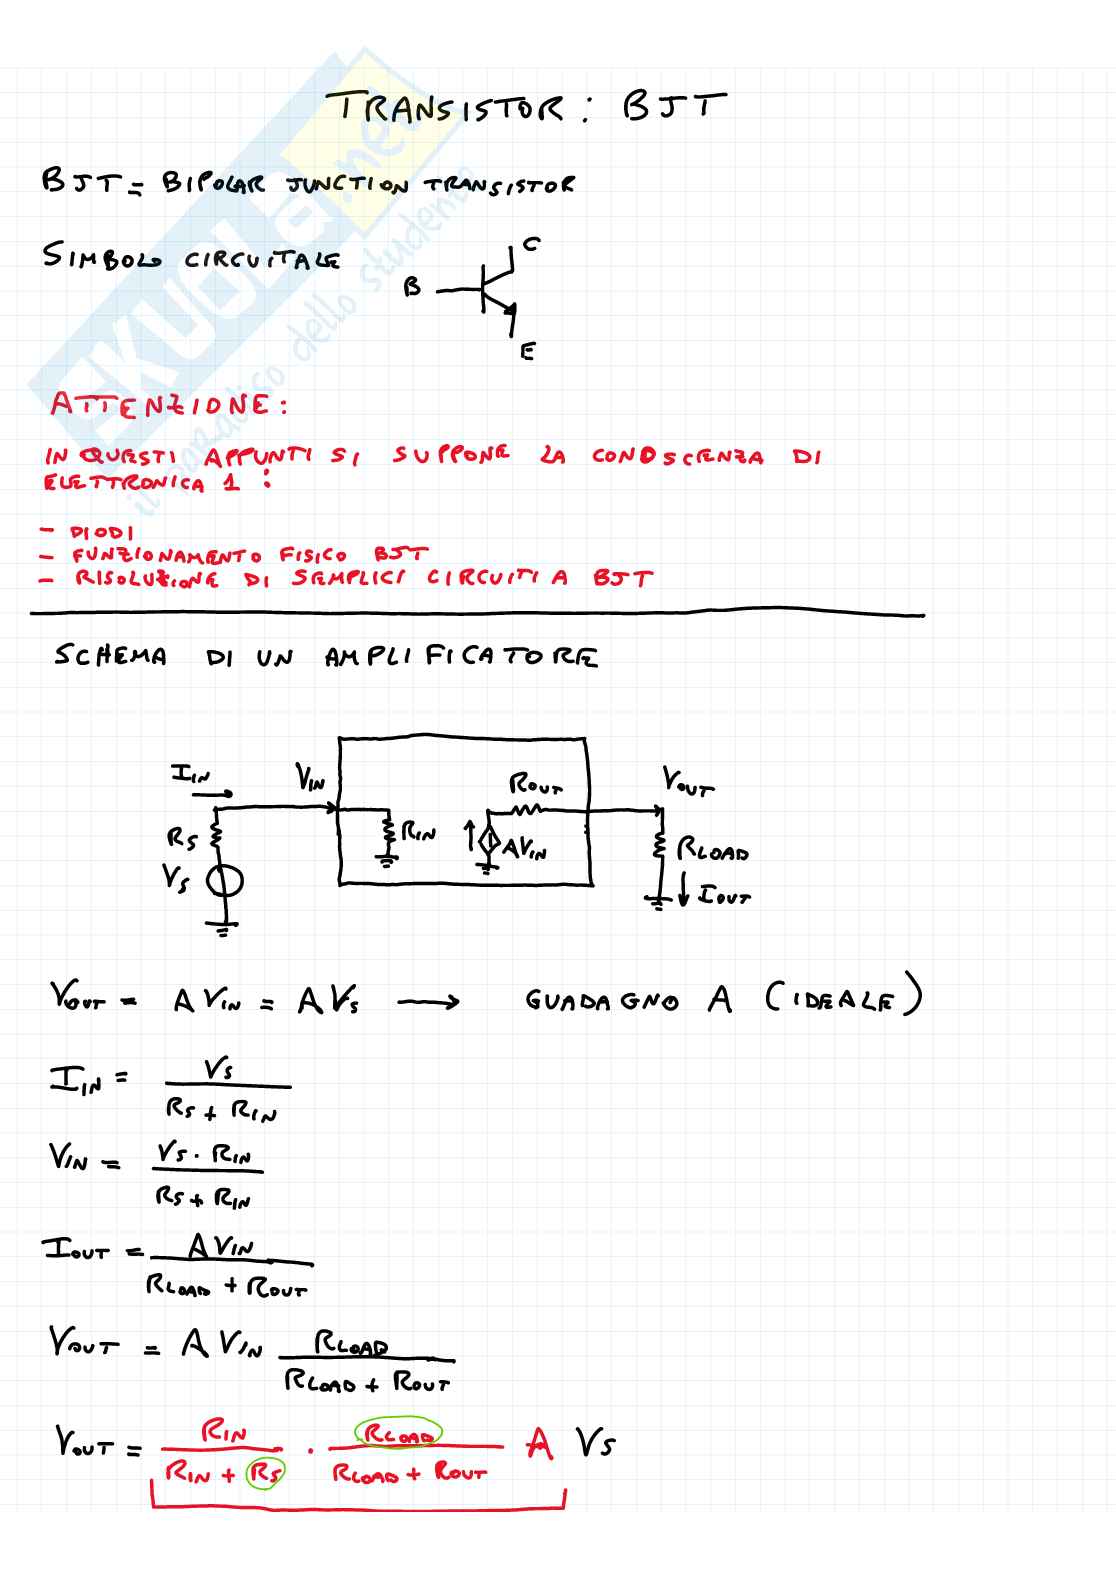 TRANSISTOR: BJT
BJT = BIPOLAR JUNCTION TRANSISTOR
SIMBOLO CIRCUITALE
C
B
E
ATTENZIONE:
IN QUESTI APPUNTI SI SUPPONE LA CONOSCENZA DI
ELETTRONICA 1:
- DIODI
- FUNZIONAMENTO FISICO BJT
- RISOLUZIONE DI SEMPLICI CIRCUITI A BJT
SCHEMA DI UN AMPLIFICATORE
I_IN V_IN R_OUT V_OUT
R_S R_IN A V_IN R_LOAD
V_S I_OUT
V_OUT = A V_IN = A V_S → GUADAGNO A (IDEALE)
I_IN = V_S / (R_S + R_IN)
V_IN = V_S · R_IN / (R_S + R_IN)
I_OUT = A V_IN / (R_LOAD + R_OUT)
V_OUT = A V_IN R_LOAD / (R_LOAD + R_OUT)
V_OUT = R_IN / (R_IN + R_S) · R_LOAD / (R_LOAD + R_OUT) A V_S
SKUOLa.net
il paradiso dello studente